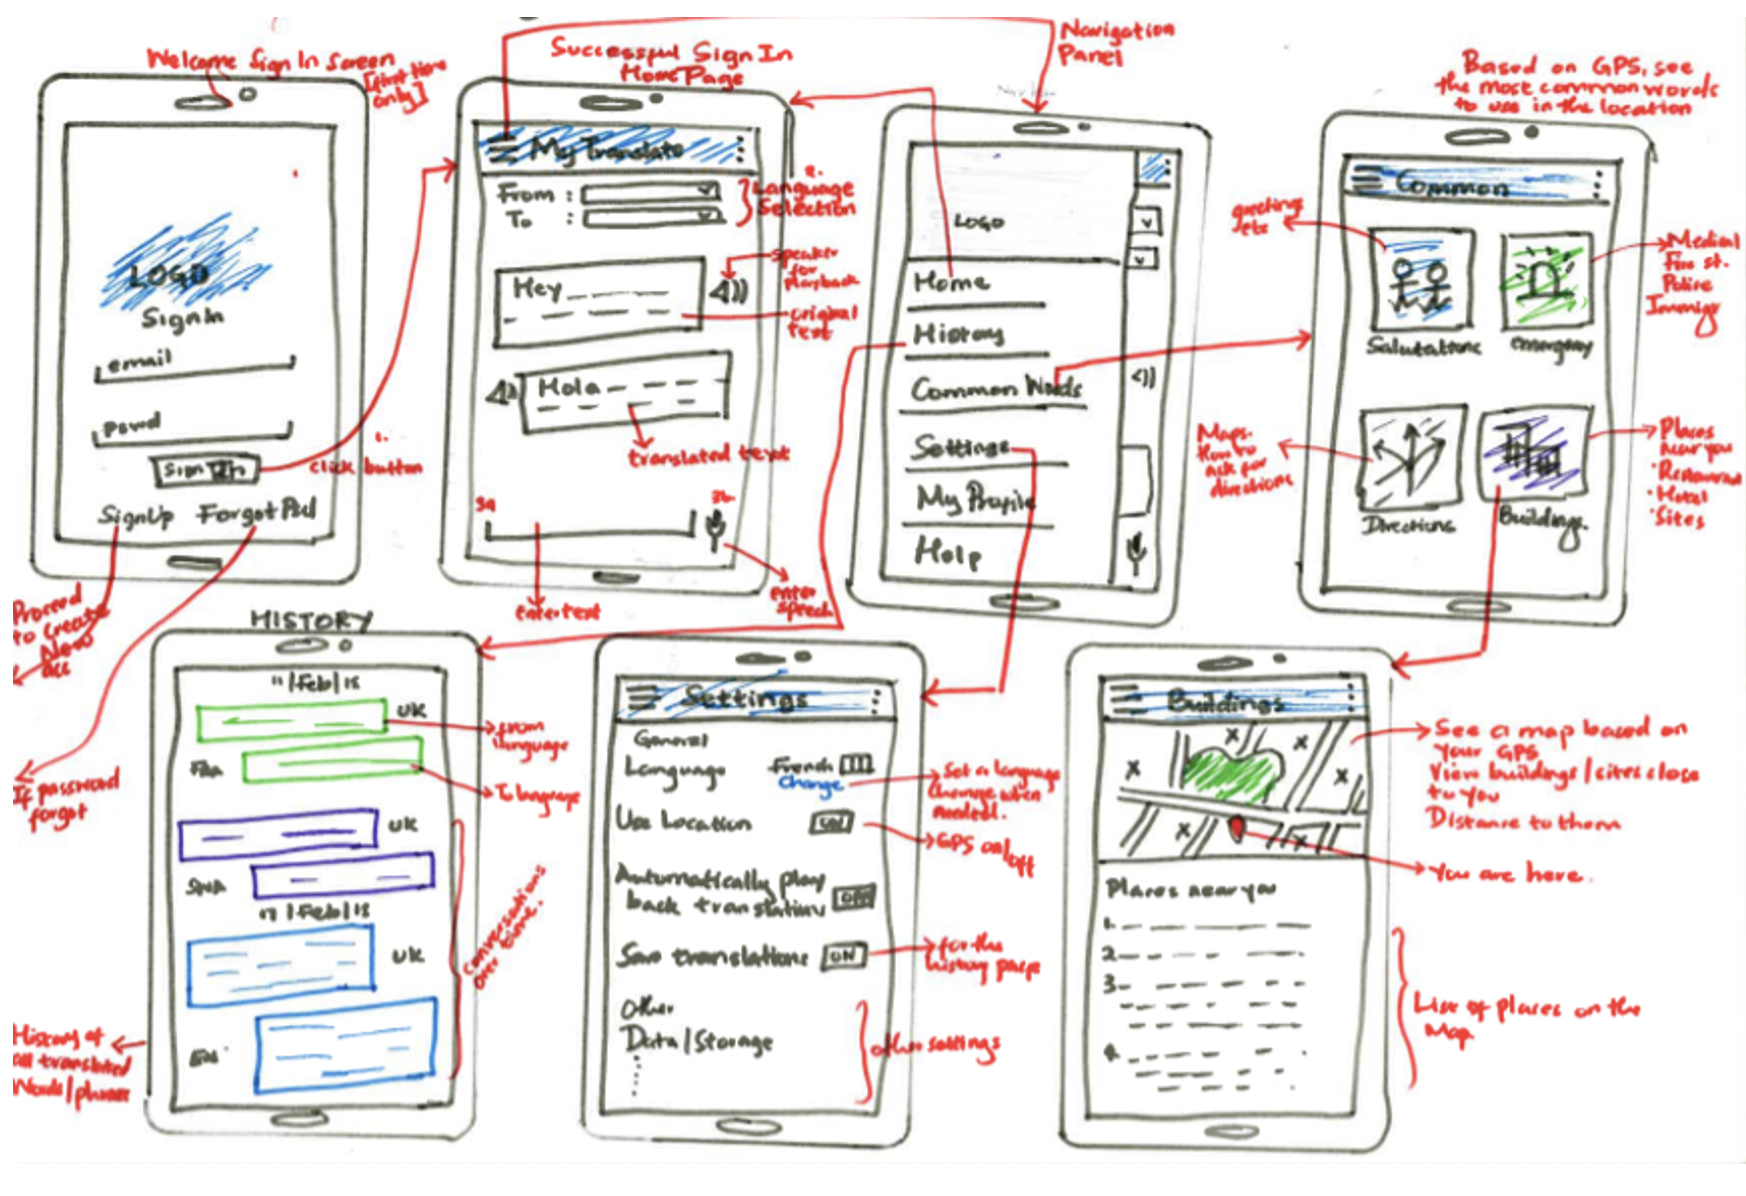 Welcome Sign In Screen
[first time
only]
LOGO
Sign In
email
Sign In
1.
click button
SignUp Forgot Pwd
Proceed
to create
New
acc
If password
forgot
Successful Sign In
Home Page
My Translate
From :
To :
2.
Language
Selection
Hey
speaker
for
playback
original
text
Hola
translated text
3a
3b
enter text
enter
speech
Navigation
Panel
LOGO
Home
History
Common Words
Settings
My Profile
Help
Based on GPS, see
the most common words
to use in the location
Common
greetings
etc
Salutations
emergency
Medical
Fire st.
Police
Immig
Maps.
How to
ask for
directions
Directions
Buildings
Places
near you
· Restaurant
· Hotel
· Sites
HISTORY
11/Feb/18
UK
from
language
To language
UK
/Feb/18
UK
conversations
over time.
History of
all translated
Words/phrases
Settings
General
Language French
change
Set a language
change when
needed.
Use Location ON
GPS on/off
Automatically play
back translations OFF
Save translations ON
for the
history page
Other
Data/Storage
other settings
Buildings
See a map based on
your GPS
View buildings/sites close
to you
Distance to them
You are here.
Places near you
1.
2.
3.
4.
List of places on the
Map